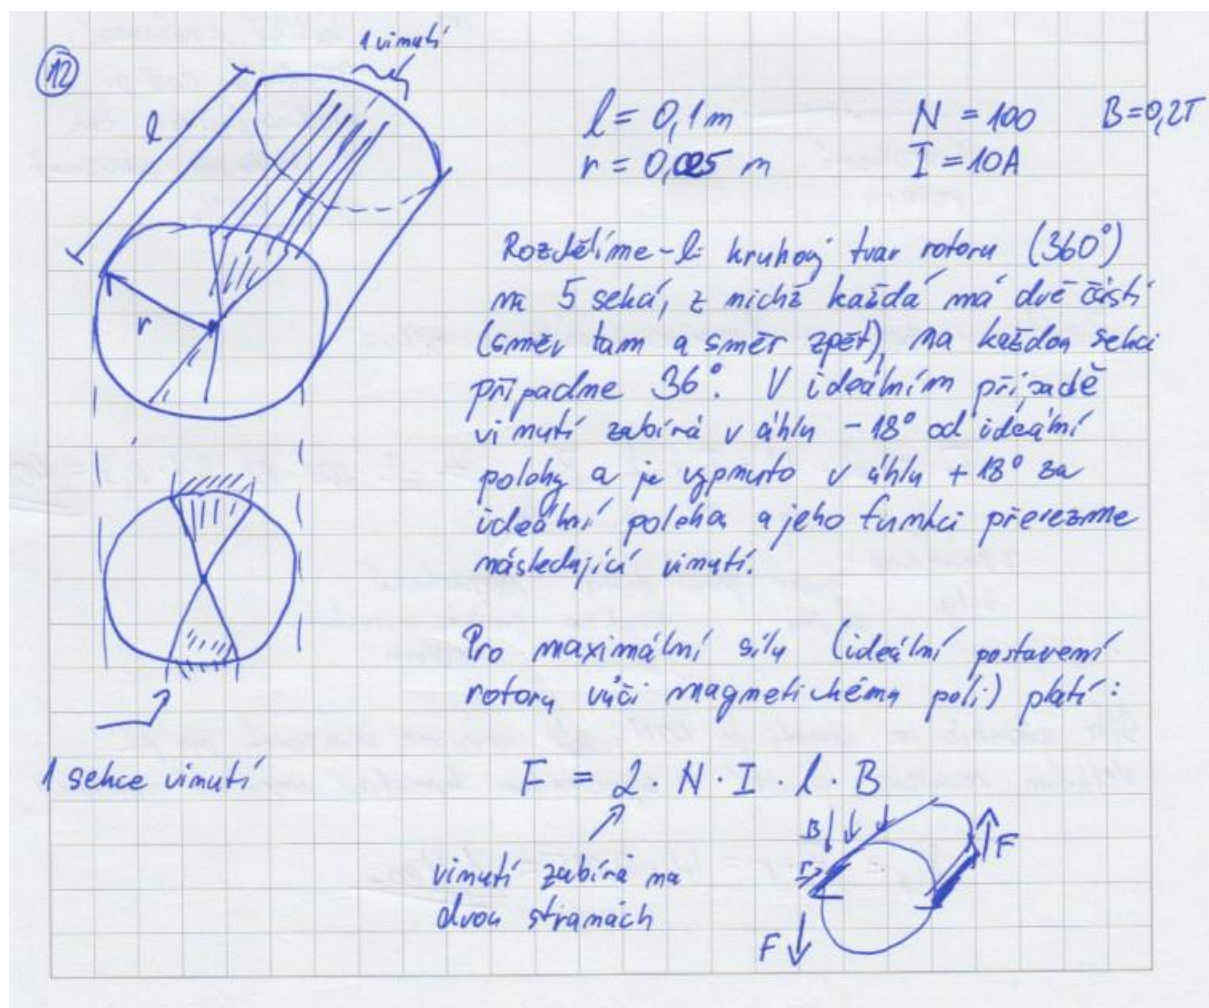 12
1 vinutí
l
l = 0,1 m N = 100 B = 0,2T
r = 0,025 m I = 10A
Rozdělíme-li kruhový tvar rotoru (360°)
na 5 sekcí, z nichž každá má dvě části
(směr tam a směr zpět), na každou sekci
připadne 36°. V ideálním případě
vinutí zabírá v úhlu - 18° od ideální
polohy a je vypnuto v úhlu + 18° za
ideální poloha a jeho funkci převezme
následující vinutí.
r
Pro maximální sílu (ideální postavení
rotoru vůči magnetickému poli) platí:
1 sekce vinutí
F = 2 · N · I · l · B
vinutí zabírá na
dvou stranách
B
I
F
F